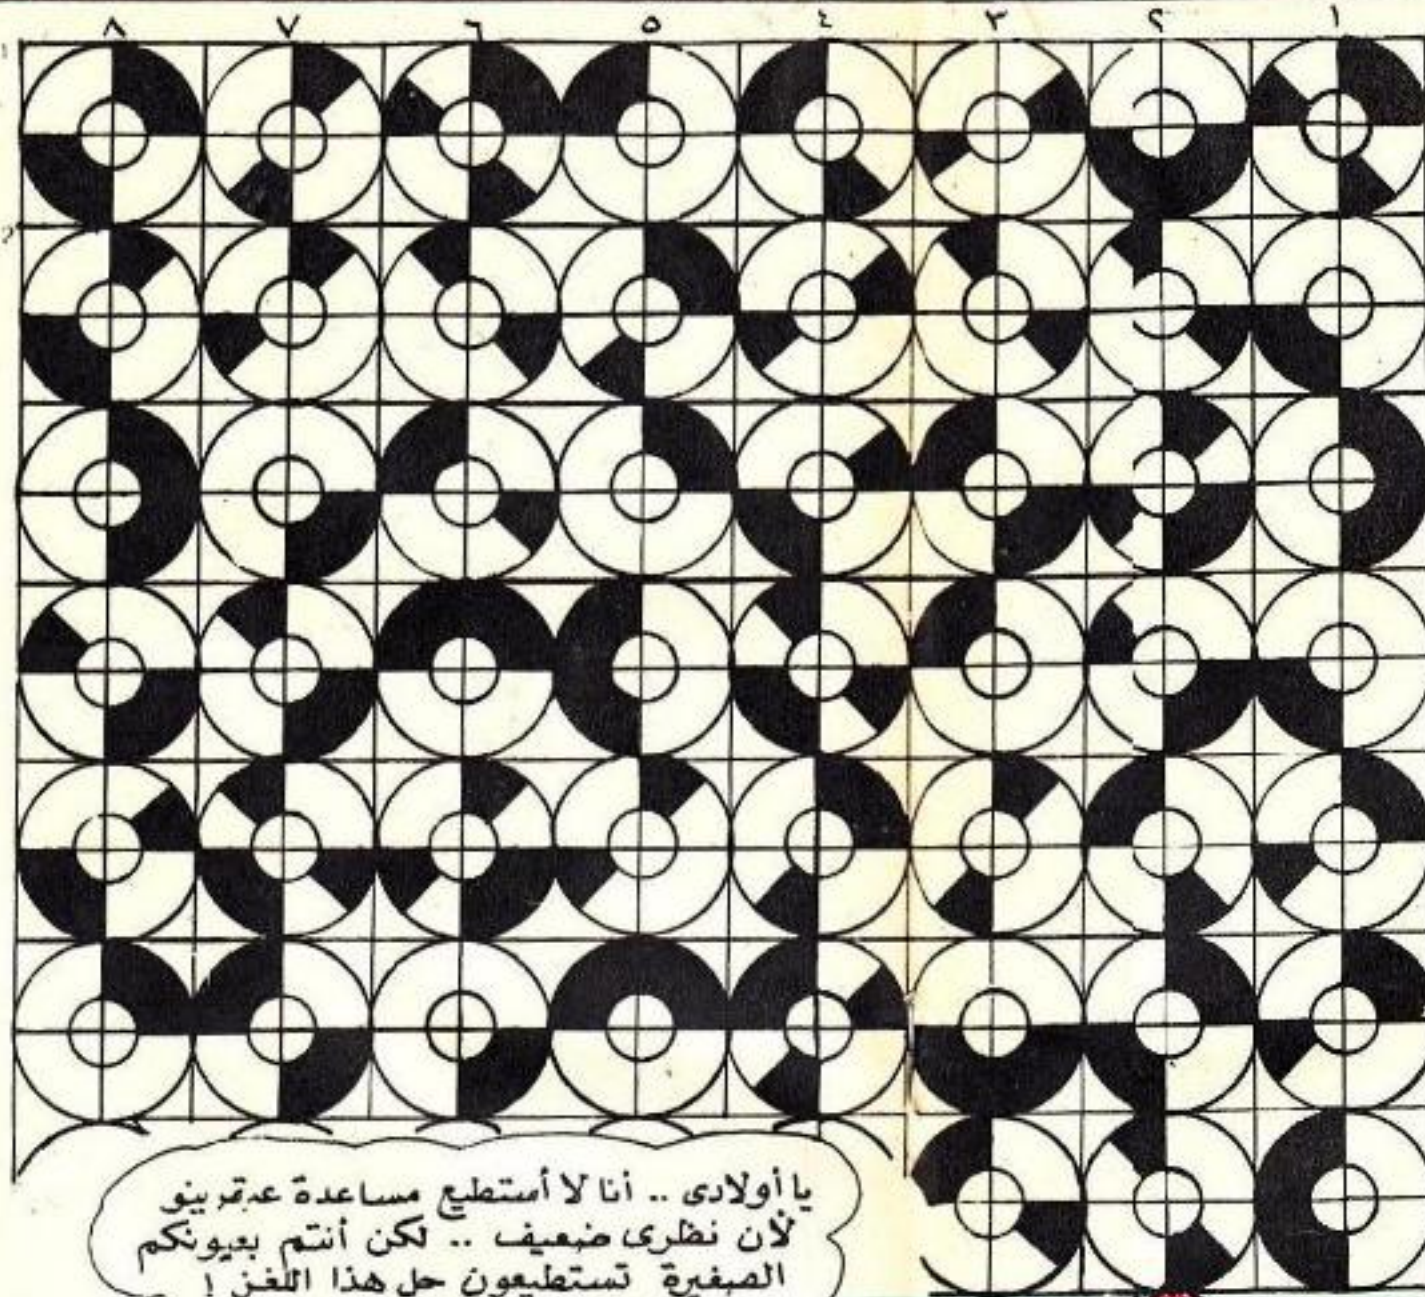 ١ ٢ ٣ ٤ ٥ ٦ ٧ ٨
يا أولادى .. أنا لا أستطيع مساعدة عبقرينو
لأن نظرى ضعيف .. لكن أنتم بعيونكم
الصغيرة تستطيعون حل هذا اللغز !